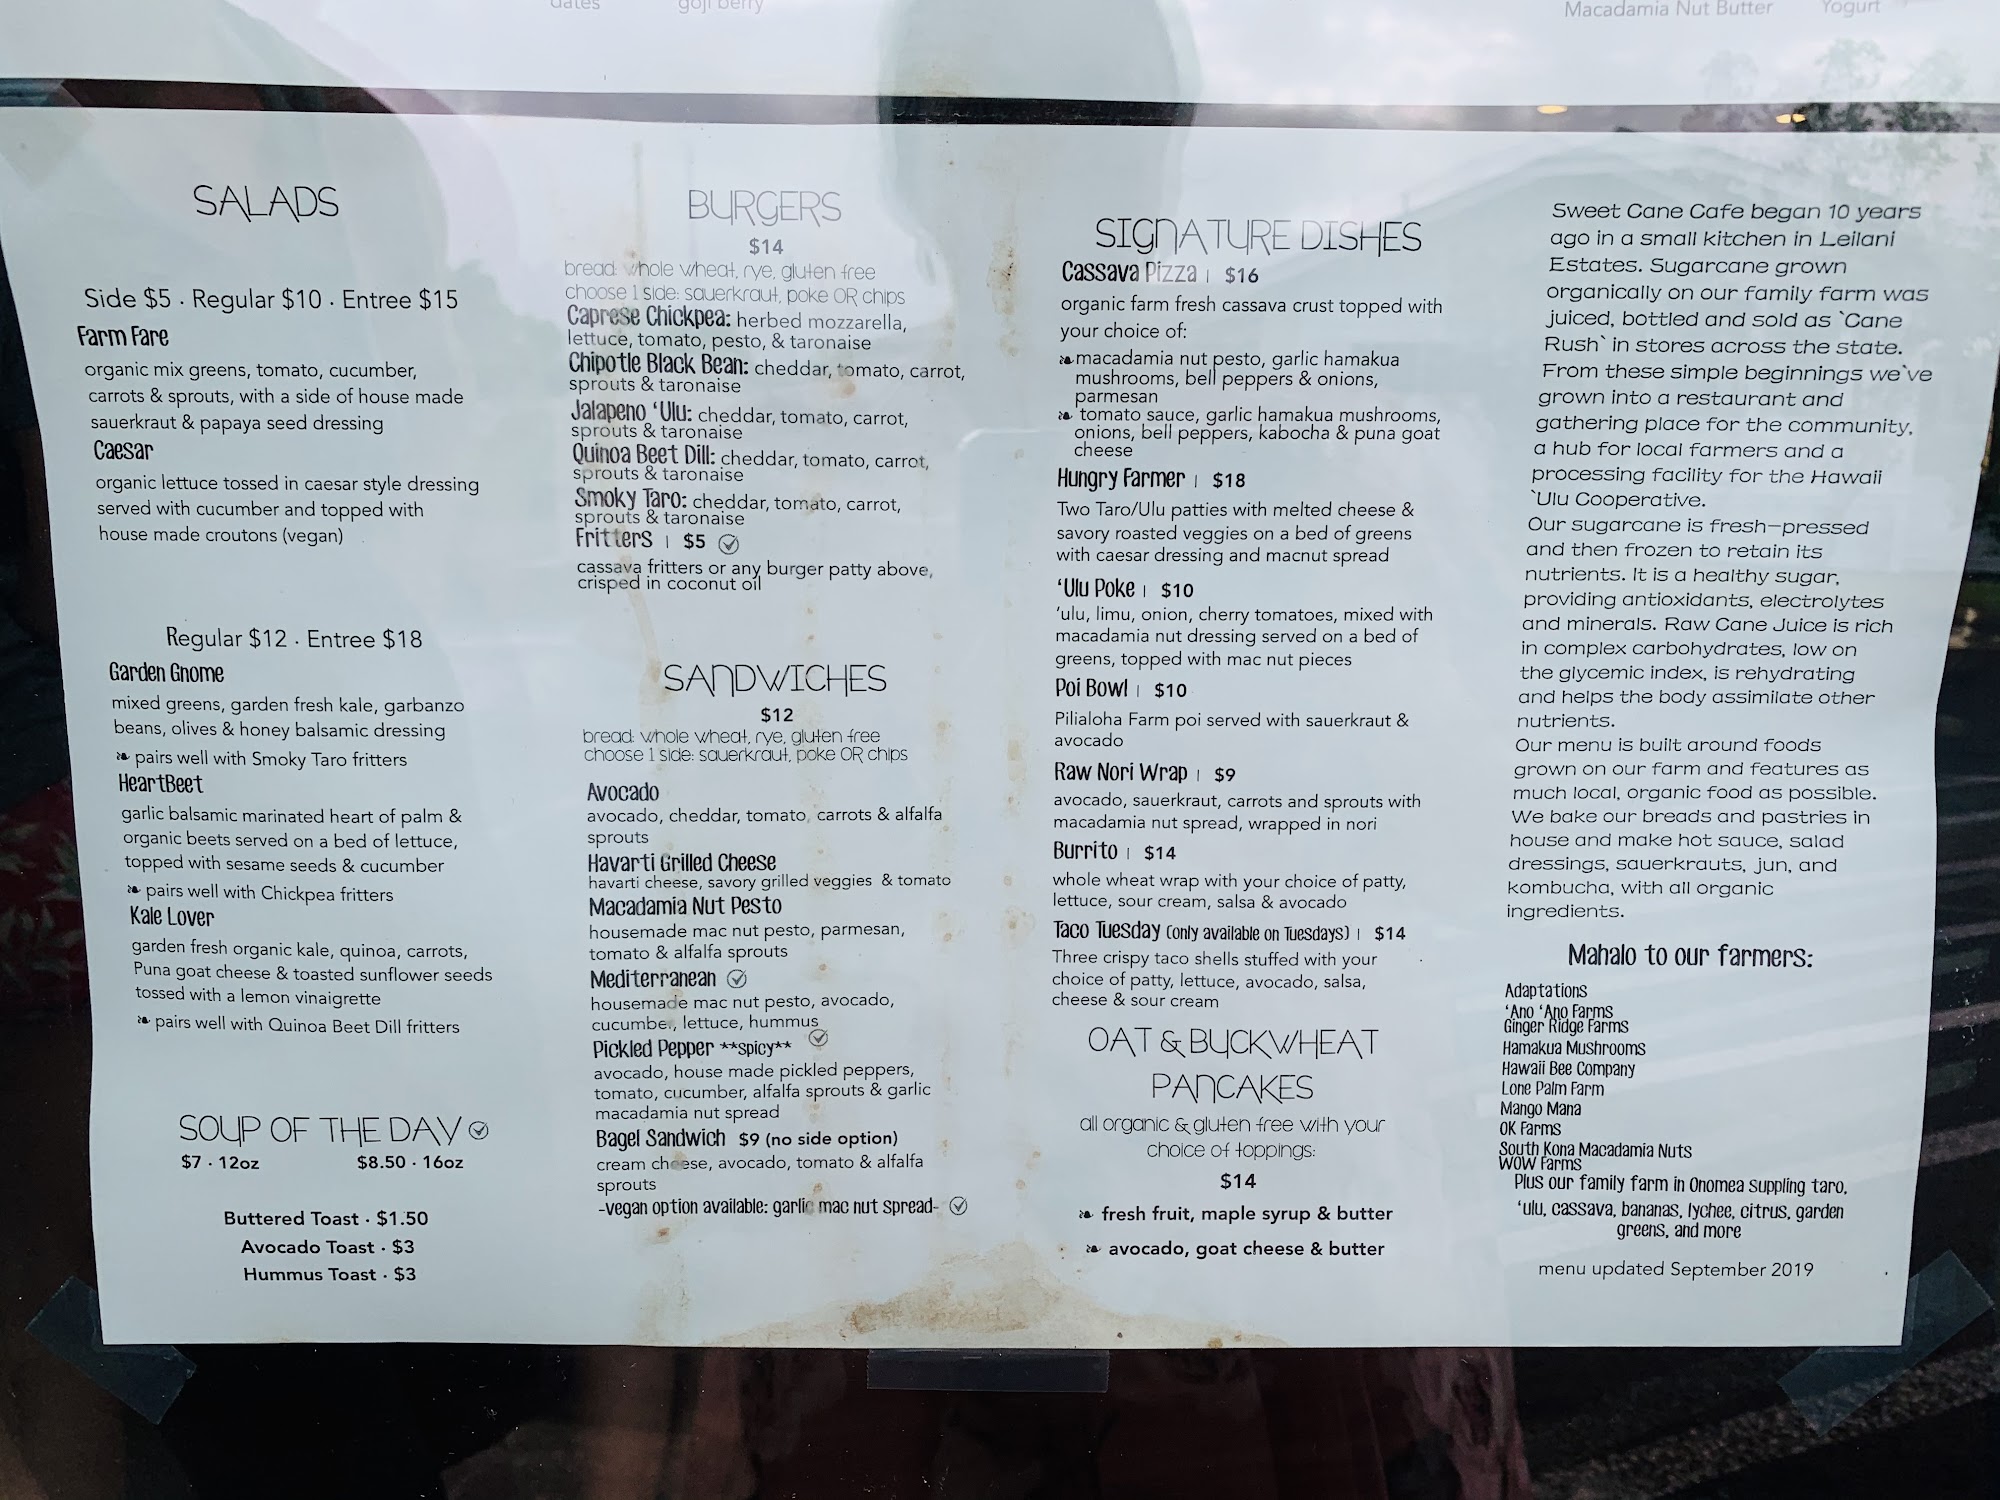 dates
goji berry
Macadamia Nut Butter
Yogurt
SALADS
Side $5 · Regular $10 · Entree $15
Farm Fare
organic mix greens, tomato, cucumber,
carrots & sprouts, with a side of house made
sauerkraut & papaya seed dressing
Caesar
organic lettuce tossed in caesar style dressing
served with cucumber and topped with
house made croutons (vegan)
Regular $12 · Entree $18
Garden Gnome
mixed greens, garden fresh kale, garbanzo
beans, olives & honey balsamic dressing
❧ pairs well with Smoky Taro fritters
HeartBeet
garlic balsamic marinated heart of palm &
organic beets served on a bed of lettuce,
topped with sesame seeds & cucumber
❧ pairs well with Chickpea fritters
Kale Lover
garden fresh organic kale, quinoa, carrots,
Puna goat cheese & toasted sunflower seeds
tossed with a lemon vinaigrette
❧ pairs well with Quinoa Beet Dill fritters
SOUP OF THE DAY
$7 · 12oz $8.50 · 16oz
Buttered Toast · $1.50
Avocado Toast · $3
Hummus Toast · $3
BURGERS
$14
bread: whole wheat, rye, gluten free
choose 1 side: sauerkraut, poke OR chips
Caprese Chickpea: herbed mozzarella,
lettuce, tomato, pesto, & taronaise
Chipotle Black Bean: cheddar, tomato, carrot,
sprouts & taronaise
Jalapeno ‘Ulu: cheddar, tomato, carrot,
sprouts & taronaise
Quinoa Beet Dill: cheddar, tomato, carrot,
sprouts & taronaise
Smoky Taro: cheddar, tomato, carrot,
sprouts & taronaise
Fritters | $5
cassava fritters or any burger patty above,
crisped in coconut oil
SANDWICHES
$12
bread: whole wheat, rye, gluten free
choose 1 side: sauerkraut, poke OR chips
Avocado
avocado, cheddar, tomato, carrots & alfalfa
sprouts
Havarti Grilled Cheese
havarti cheese, savory grilled veggies & tomato
Macadamia Nut Pesto
housemade mac nut pesto, parmesan,
tomato & alfalfa sprouts
Mediterranean
housemade mac nut pesto, avocado,
cucumber, lettuce, hummus
Pickled Pepper **spicy**
avocado, house made pickled peppers,
tomato, cucumber, alfalfa sprouts & garlic
macadamia nut spread
Bagel Sandwich $9 (no side option)
cream cheese, avocado, tomato & alfalfa
sprouts
-vegan option available: garlic mac nut spread-
SIGNATURE DISHES
Cassava Pizza | $16
organic farm fresh cassava crust topped with
your choice of:
❧ macadamia nut pesto, garlic hamakua
mushrooms, bell peppers & onions,
parmesan
❧ tomato sauce, garlic hamakua mushrooms,
onions, bell peppers, kabocha & puna goat
cheese
Hungry Farmer | $18
Two Taro/Ulu patties with melted cheese &
savory roasted veggies on a bed of greens
with caesar dressing and macnut spread
‘Ulu Poke | $10
'ulu, limu, onion, cherry tomatoes, mixed with
macadamia nut dressing served on a bed of
greens, topped with mac nut pieces
Poi Bowl | $10
Pilialoha Farm poi served with sauerkraut &
avocado
Raw Nori Wrap | $9
avocado, sauerkraut, carrots and sprouts with
macadamia nut spread, wrapped in nori
Burrito | $14
whole wheat wrap with your choice of patty,
lettuce, sour cream, salsa & avocado
Taco Tuesday (only available on Tuesdays) | $14
Three crispy taco shells stuffed with your
choice of patty, lettuce, avocado, salsa,
cheese & sour cream
OAT & BUCKWHEAT
PANCAKES
all organic & gluten free with your
choice of toppings:
$14
❧ fresh fruit, maple syrup & butter
❧ avocado, goat cheese & butter
Sweet Cane Cafe began 10 years
ago in a small kitchen in Leilani
Estates. Sugarcane grown
organically on our family farm was
juiced, bottled and sold as `Cane
Rush` in stores across the state.
From these simple beginnings we`ve
grown into a restaurant and
gathering place for the community,
a hub for local farmers and a
processing facility for the Hawaii
`Ulu Cooperative.
Our sugarcane is fresh-pressed
and then frozen to retain its
nutrients. It is a healthy sugar,
providing antioxidants, electrolytes
and minerals. Raw Cane Juice is rich
in complex carbohydrates, low on
the glycemic index, is rehydrating
and helps the body assimilate other
nutrients.
Our menu is built around foods
grown on our farm and features as
much local, organic food as possible.
We bake our breads and pastries in
house and make hot sauce, salad
dressings, sauerkrauts, jun, and
kombucha, with all organic
ingredients.
Mahalo to our farmers:
Adaptations
‘Ano ‘Ano Farms
Ginger Ridge Farms
Hamakua Mushrooms
Hawaii Bee Company
Lone Palm Farm
Mango Mana
OK Farms
South Kona Macadamia Nuts
WOW Farms
Plus our family farm in Onomea suppling taro,
‘ulu, cassava, bananas, lychee, citrus, garden
greens, and more
menu updated September 2019